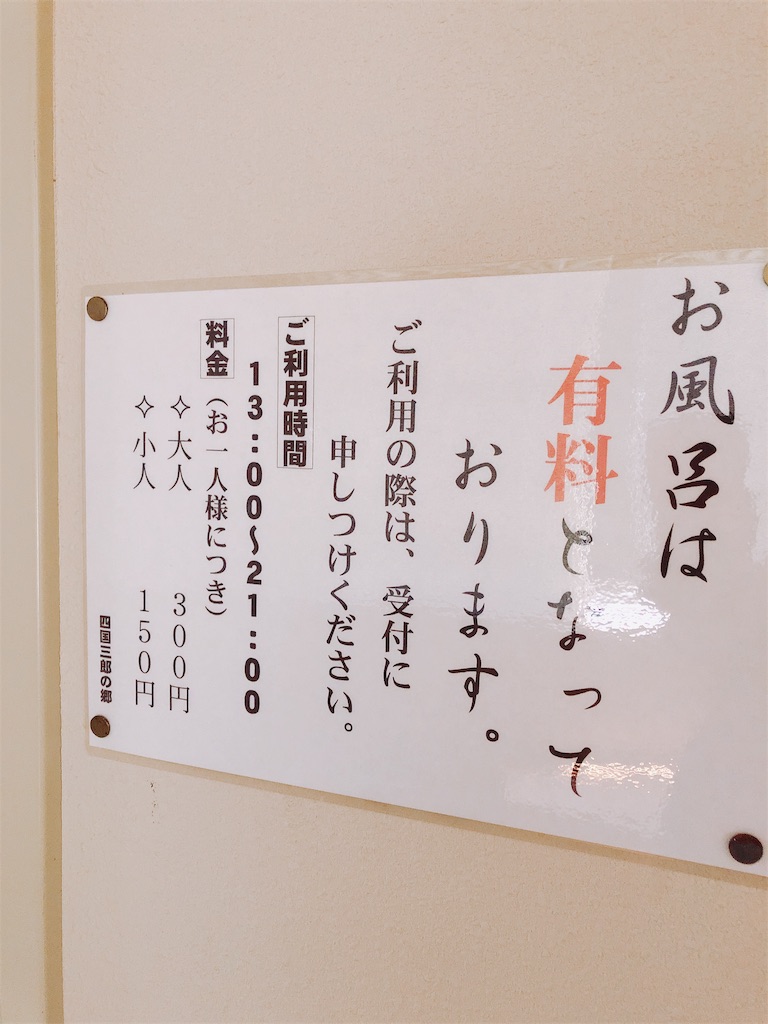 お風呂は
有料となって
おります。
ご利用の際は、受付に
申しつけください。
ご利用時間
13:00〜21:00
料金（お一人様につき）
✧大人 300円
✧小人 150円
四国三郎の郷